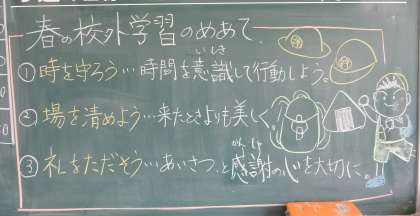 春の校外学習のめあて
いしき
①時を守ろう…時間を意識して行動しよう。
②場を清めよう…来たときよりも美しく。
かんしゃ
③礼をただそう…あいさつと感謝の心を大切に。